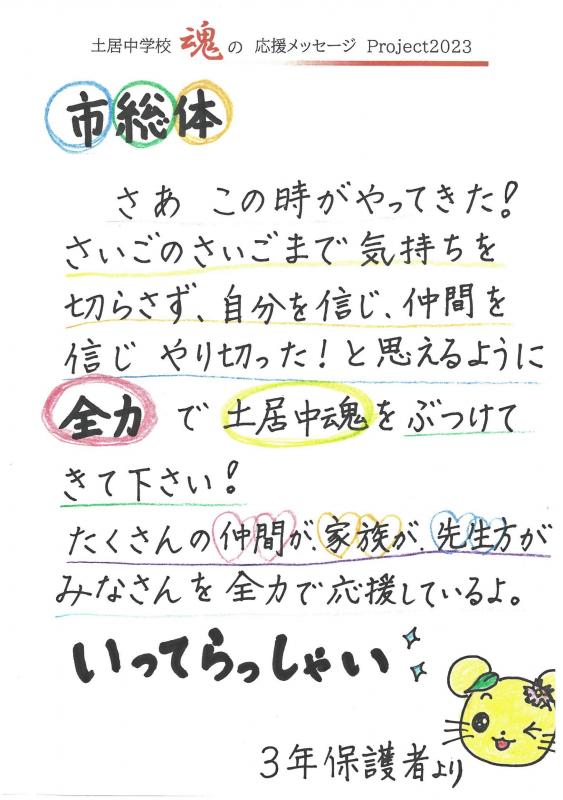 土居中学校 魂の 応援メッセージ Project2023
市総体
さあ この時がやってきた!
さいごのさいごまで 気持ちを
切らさず、自分を信じ、仲間を
信じ やり切った!と思えるように
全力 で 土居中魂をぶつけて
きて下さい!
たくさんの仲間が、家族が、先生方が
みなさんを全力で応援しているよ。
いってらっしゃい
3年保護者より